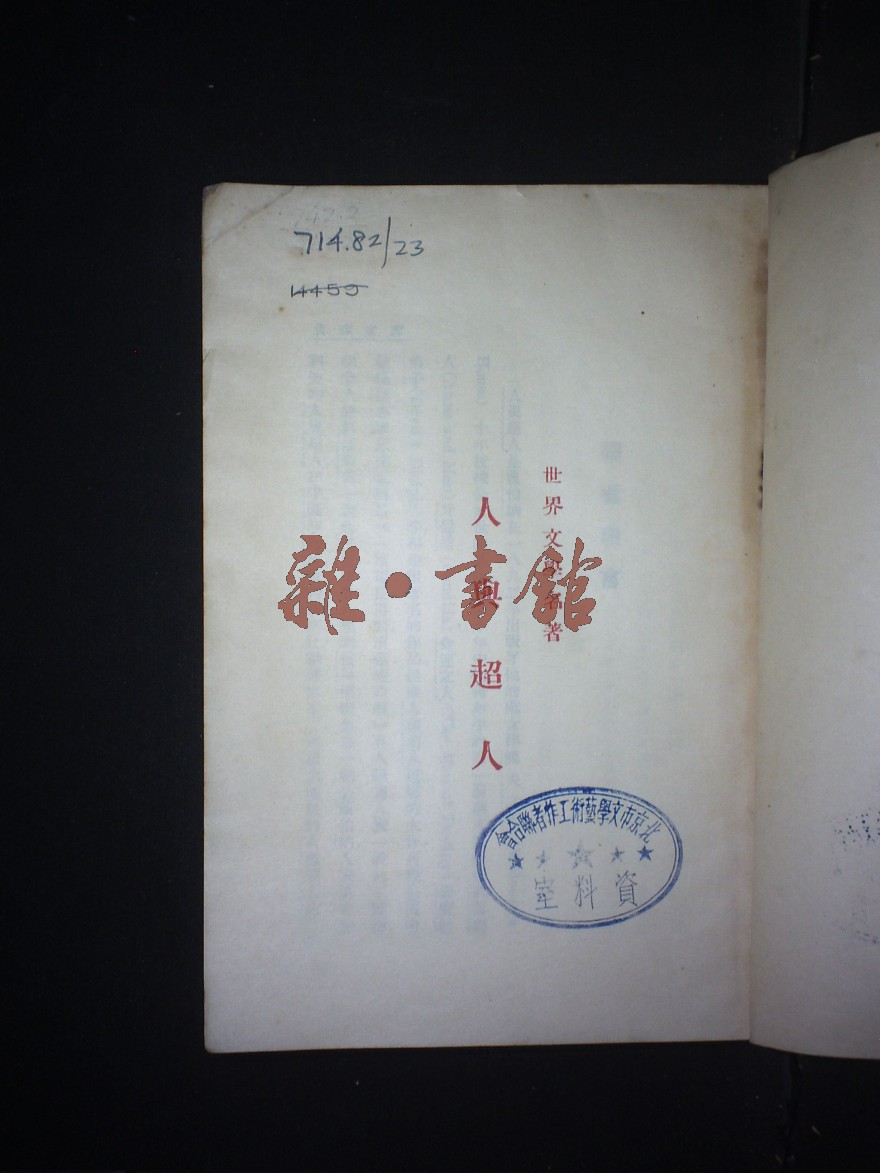 714.82/23
14459
世界文學名著
人與超人
雜·書館
北京市文學藝術工作者聯合會
資料室